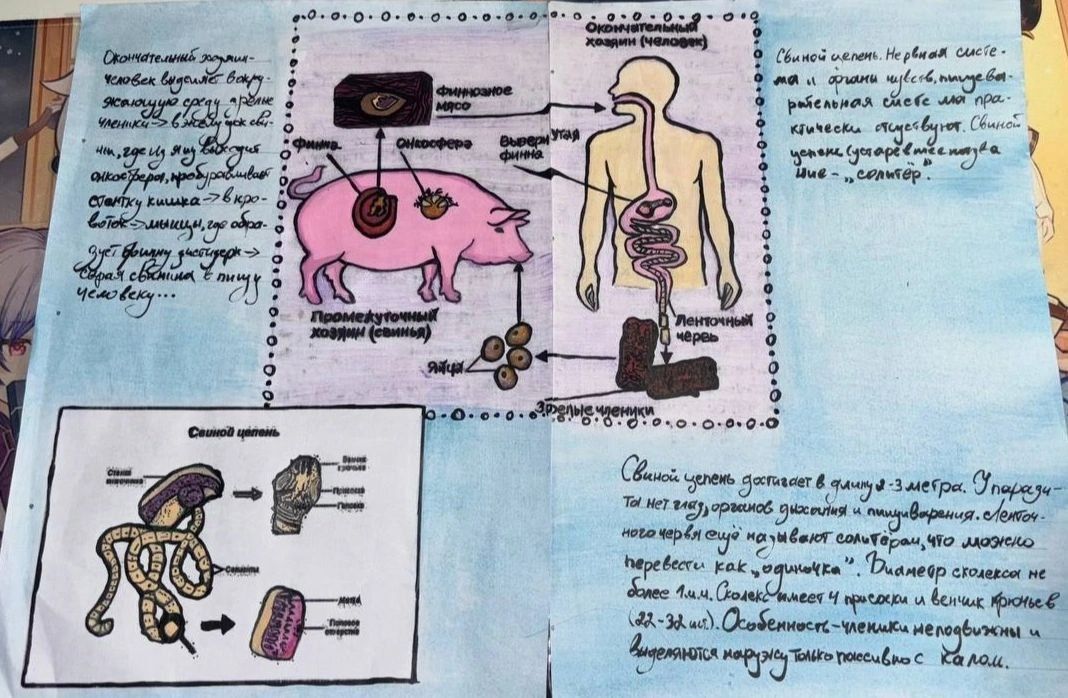 Окончательный хозяин-
человек выделяет в окру-
жающую среду зрелые
членики -> в желудок сви-
ньи, где из яиц выходит
онкосфера, пробуравливает
стенку кишка -> в кро-
воток -> мышцы, где обра-
зует финну цистицерк ->
сырая свинина в пищу
человеку...
Окончательный
хозяин (человек)
Финнозное
мясо
Финна
Онкосфера
Вывернутая
финна
Промежуточный
хозяин (свинья)
Яйца
Ленточный
червь
Зрелые членики
Свиной цепень. Нервная систе-
ма и органы чувств, пищева-
рительная система пра-
ктически отсутствуют. Свиной
цепень (устаревшее назва
ние - „солитёр".
Свиной цепень
Стенка
кишечника
Присоски
Головка
Сегменты
Матка
Половое
отверстие
Свиной цепень достигает в длину 2-3 метра. У парази-
та нет глаз, органов дыхания и пищиварения. Ленточ-
ного червя ещё называют солитёром, что можно
перевести как „одиночка". Диаметр сколекса не
более 1 м.м. Сколекс имеет 4 присоски и венчик крючьев
(22-32 шт.). Особенность-членики неподвижны и
выделяются наружу только пассивно с калом.